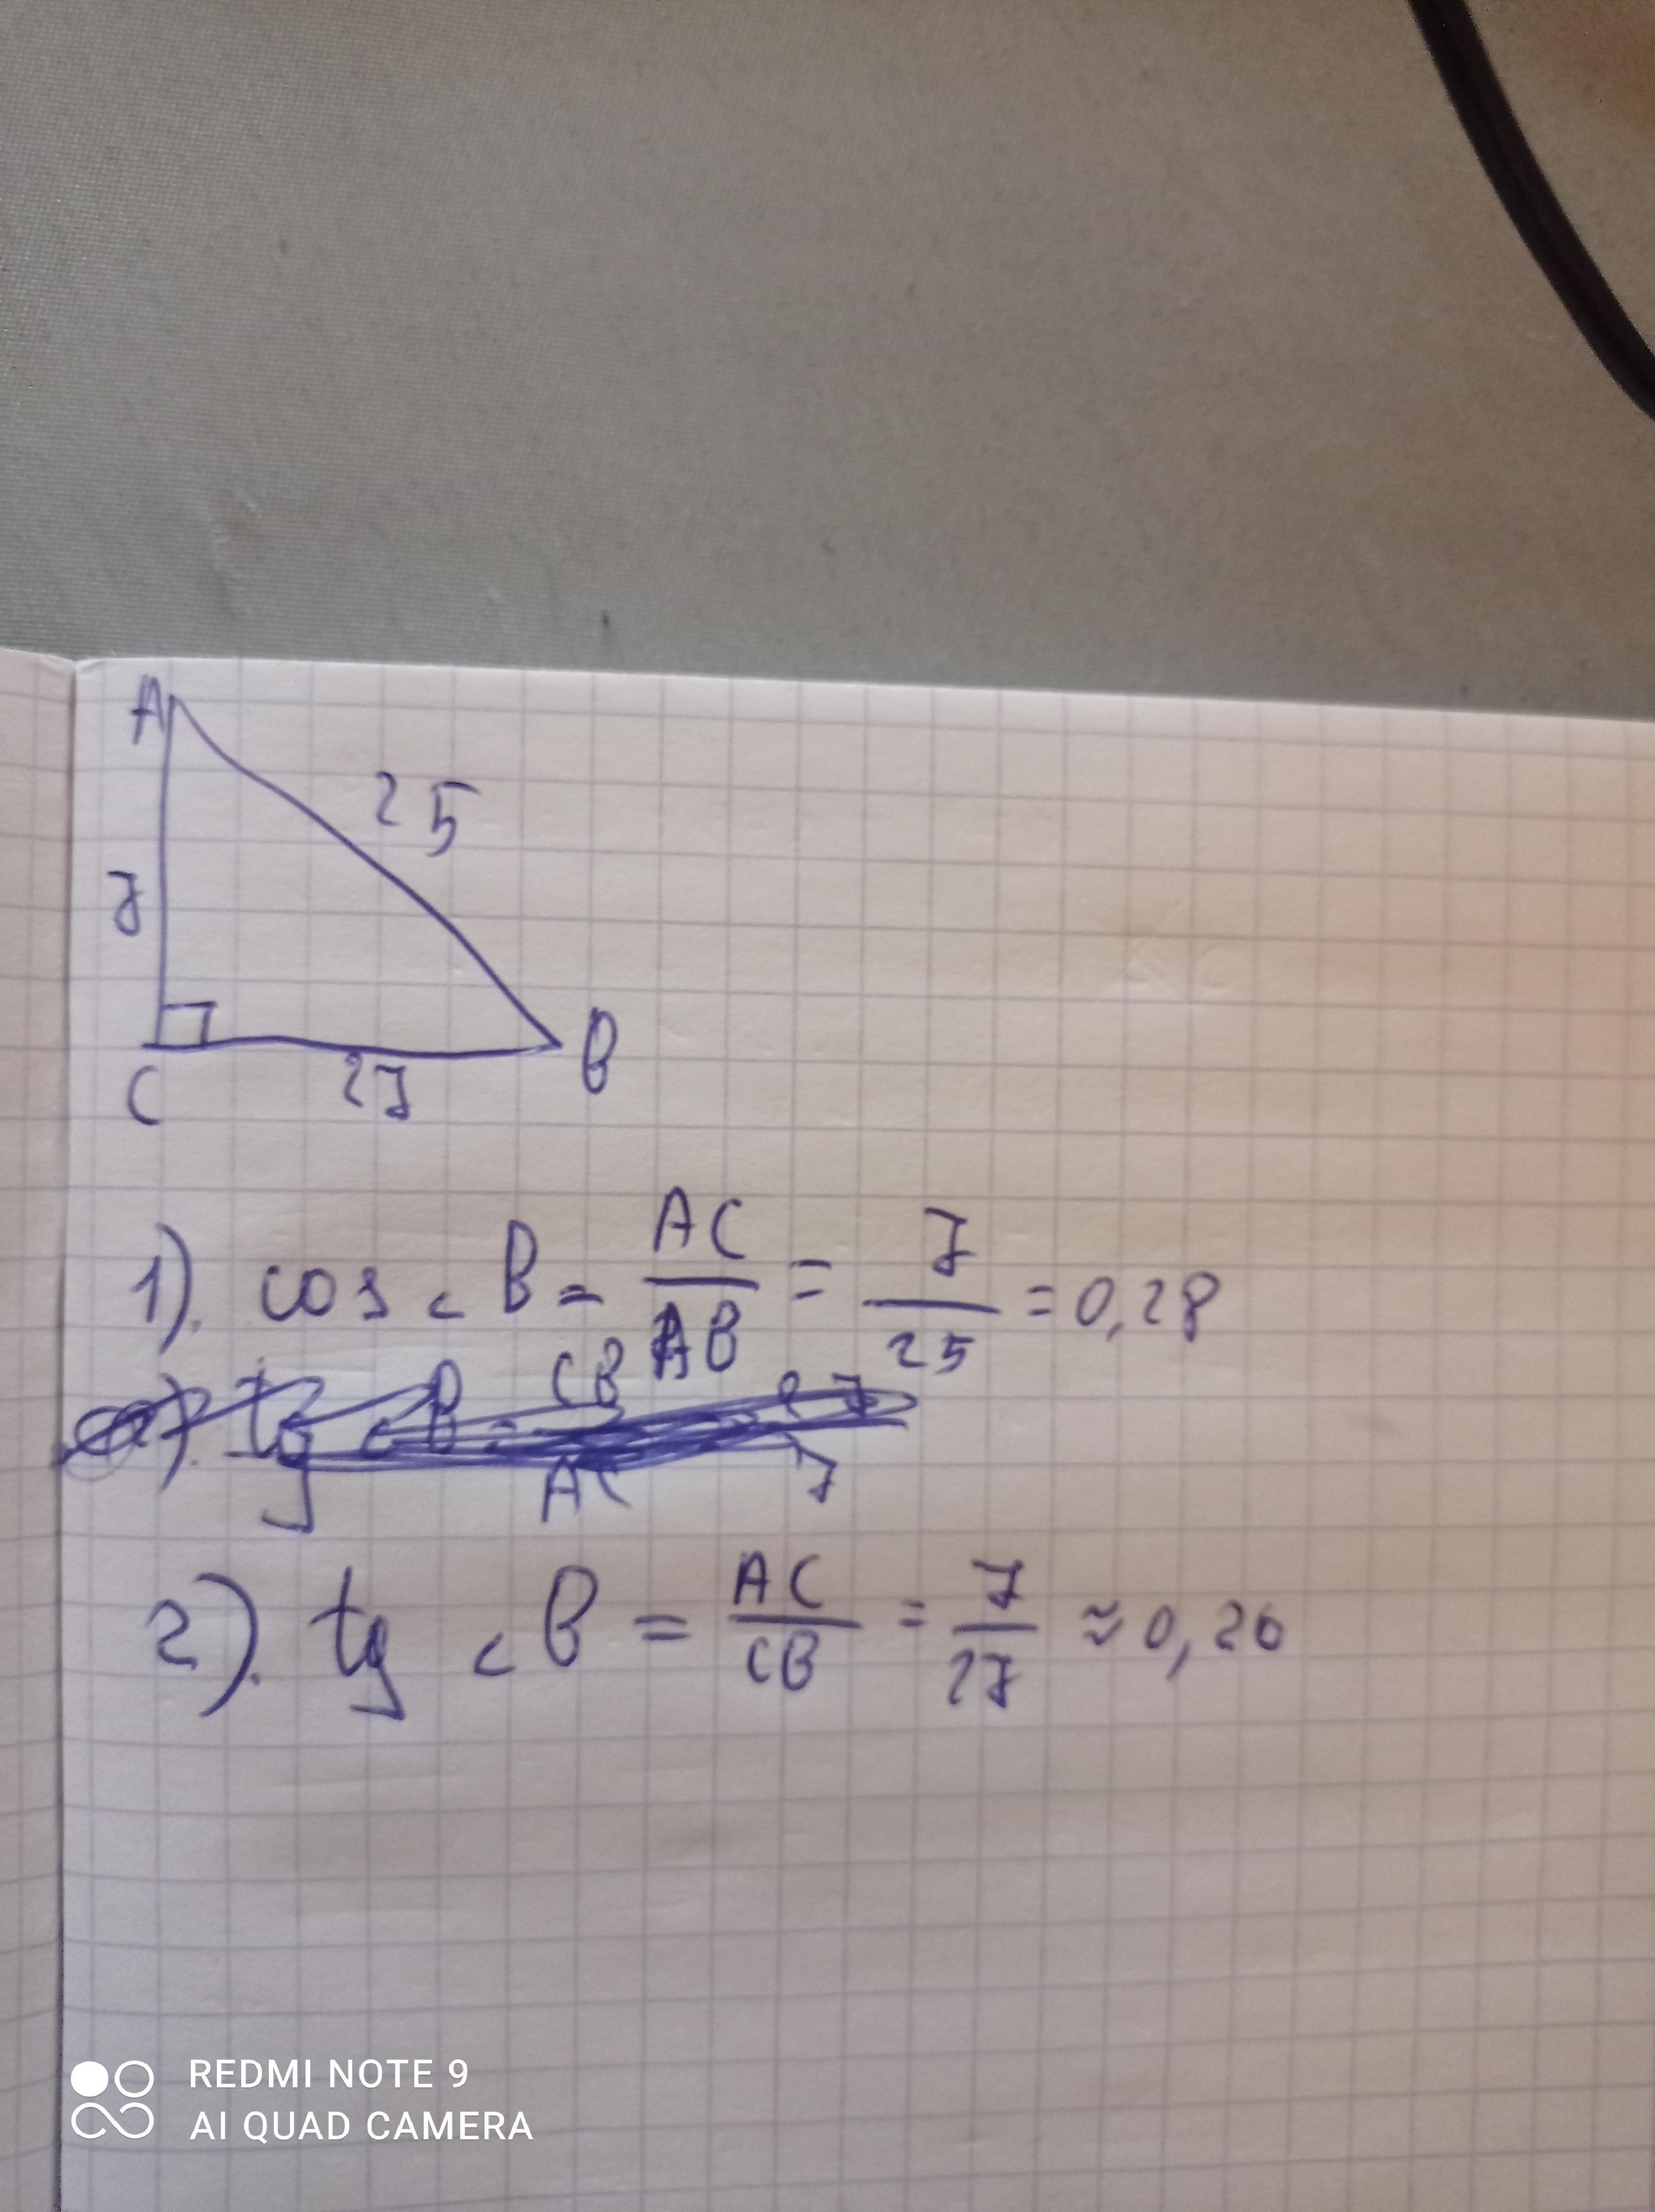 A
25
7
C
27
B
1). cos ∠ B = AC/AB = 7/25 = 0,28
tg ∠ B = CB/AC 7
2). tg ∠ B = AC/CB = 7/27 ≈ 0,26
REDMI NOTE 9
AI QUAD CAMERA